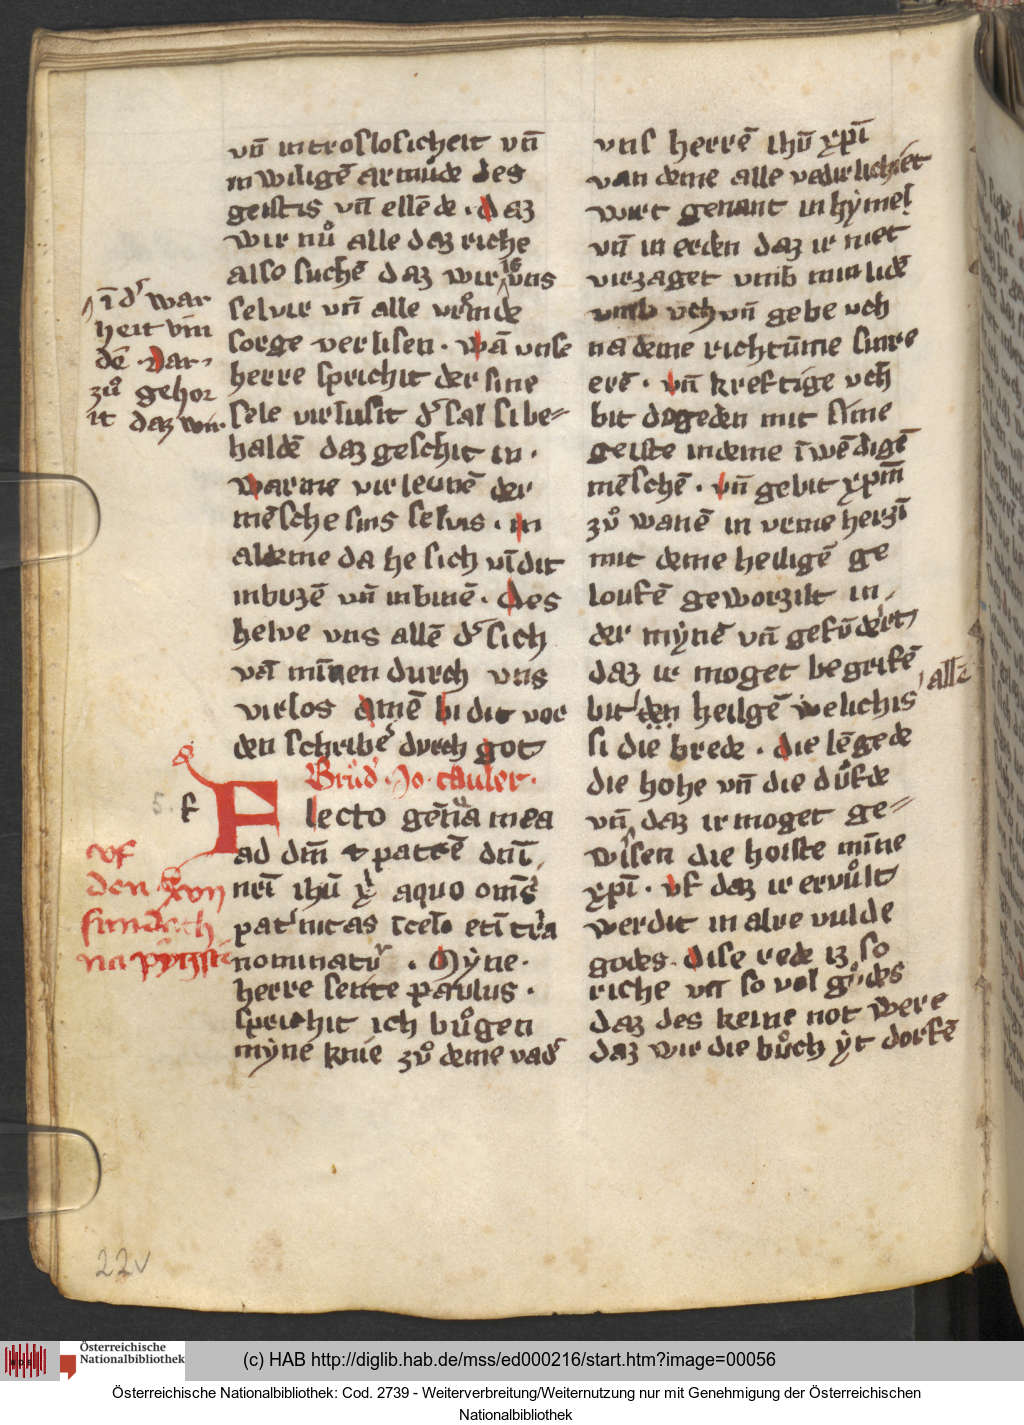 vn̄ in troſloſicheit vn̄
in wiligē armůde des
geiſtis vn̄ ellēde · daz
wir nů alle daz riche
alſo ſuchē daz wir vns
ſelvir vn̄ alle vrōmde
ſorge verliſen · wā vnſe
herre ſprichit der ſine
ſele virluſit d᷎ ſal ſi be⸗
haldē daz geſchit in ·
warme virleunē der
mēſche ſins ſelvis · in
aldeme da he ſich vīdit
inbuzē vn̄ inbinē · des
helve vns allē d᷎ ſich
vā mīnen durch vns
virlos amē bidit vor
den ſchribē durch got
ī d᷎ war
heit vin
dē · dar
zů gehor
it daz wir
Brůd᷎ · Jo · tauler ·
f
Flecto genūa mea
ad dm̄ & patrē dn̄ī
nr̄ī ihū xp̄ī a quo omīs
pat᷎nitas ī celo et ī tr̄a
nominatur · Myne ·
herre ſente paulus ·
ſprichit ich bůgen
myne knie zů deme vad᷎
vf
den xvij
ſundach
na pyngſtē
vnſ herrē ihū xp̄ī
van deme alle vadirlichēit
wirt genant in hymel
vn̄ in erden daz ir niet
virzaget vmb min lidē
vmb vch vn̄ gebe vch
na deme richtūme ſinre
erē · vn̄ kreftige vch
bit dogeden mit ſime
geiſte in deme īwēdigē
mēſchē · vn̄ gebit xp̄m̄
zů wanē in vrme herzī
mit deme heiligē ge
loufē geworzilt in
der mynē vn̄ gefūdert
daz ir moget begrifē
bit den heilgē welichis
allē
ſi die brede · die lēgede
die hohe vn̄ die důfde
vn̄ daz ir moget ge⸗
wiſen die hoiſte mīne
xp̄ī · vf daz ir ervůlt
werdit in alve vulde
godes · Diſe rede iz ſo
riche vn̄ ſo vol gůdes
daz des keine not were
daz wir die bůch yt dorfē
22v
Österreichische
Nationalbibliothek
(c) HAB http://diglib.hab.de/mss/ed000216/start.htm?image=00056
Österreichische Nationalbibliothek: Cod. 2739 - Weiterverbreitung/Weiternutzung nur mit Genehmigung der Österreichischen
Nationalbibliothek